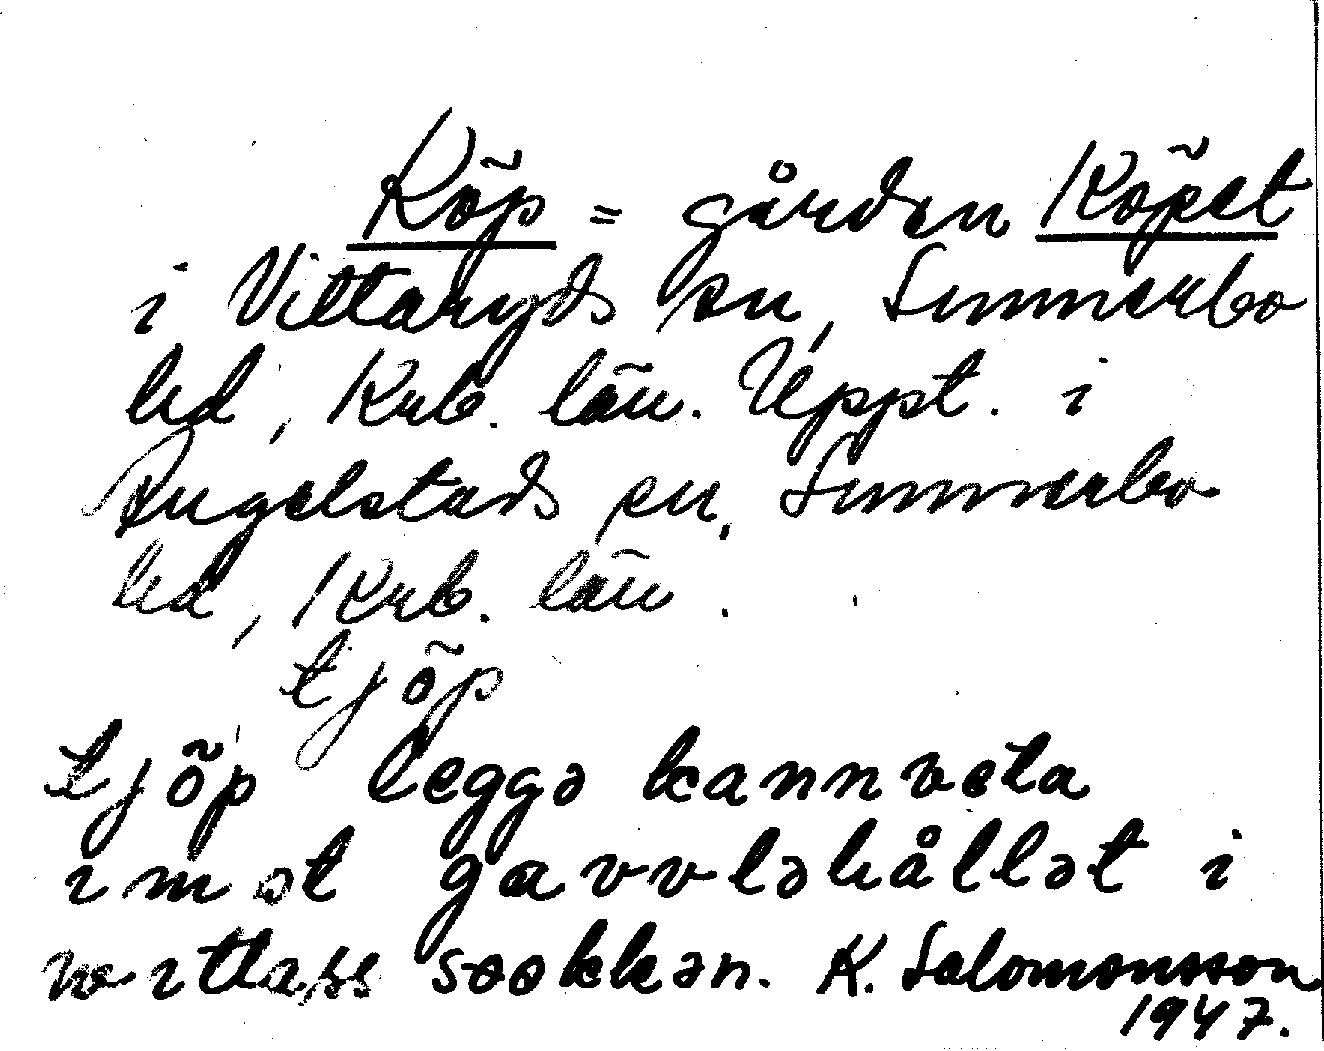 Köp = gården Köpet
i Vittaryds sn, Sunnerbo
hd, Krb. län. Uppt. i
Angelstads sn, Sunnerbo
hd, Krb. län.
tjöp
tjöp leggə kannveta
imot gavvləhållət i
vitlass sookkən. K. Salomonsson
1947.